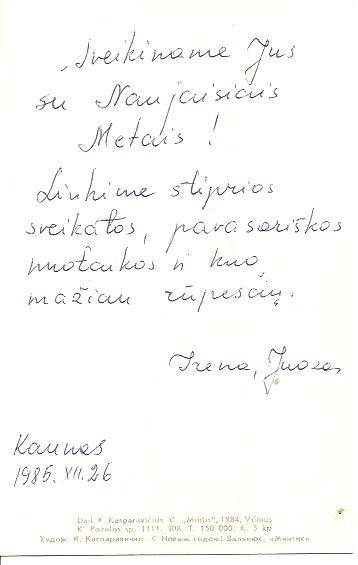 Sveikiname Jus
su Naujaisiais
Metais!
Linkime stiprios
sveikatos, pavasariškos
nuotaikos ir kuo
mažiau rūpesčių.
Irena, Juozas
Kaunas
1985. VII. 26
Dail. K. Kasparavičius. C „Mintis“, 1984, Vilnius
K. Poželos sp. 1111. 108. T. 150 000. K. 5 kp
Худож. К. Каспаравичюс. С Новым годом! Вильнюс, «Минтис»